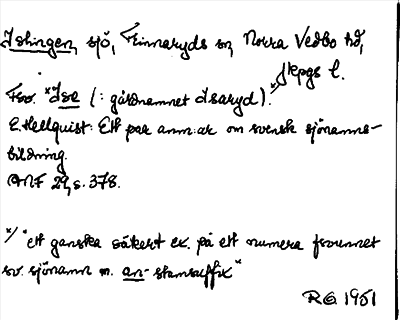 Ishingen, sjö, Finnaryds sn, Norra Vedbo hd,
Jkpgs l.
Fsv. *Ise (: gårdnamnet Isaryd).x/
E. Hellquist: Ett par anm:ar om svensk sjönamns-
bildning.
ANF 29, s. 378.
x/ "ett ganska säkert ex. på ett numera försvunnet
sv. sjönamn m. an-stamsuffix"
RG 1951